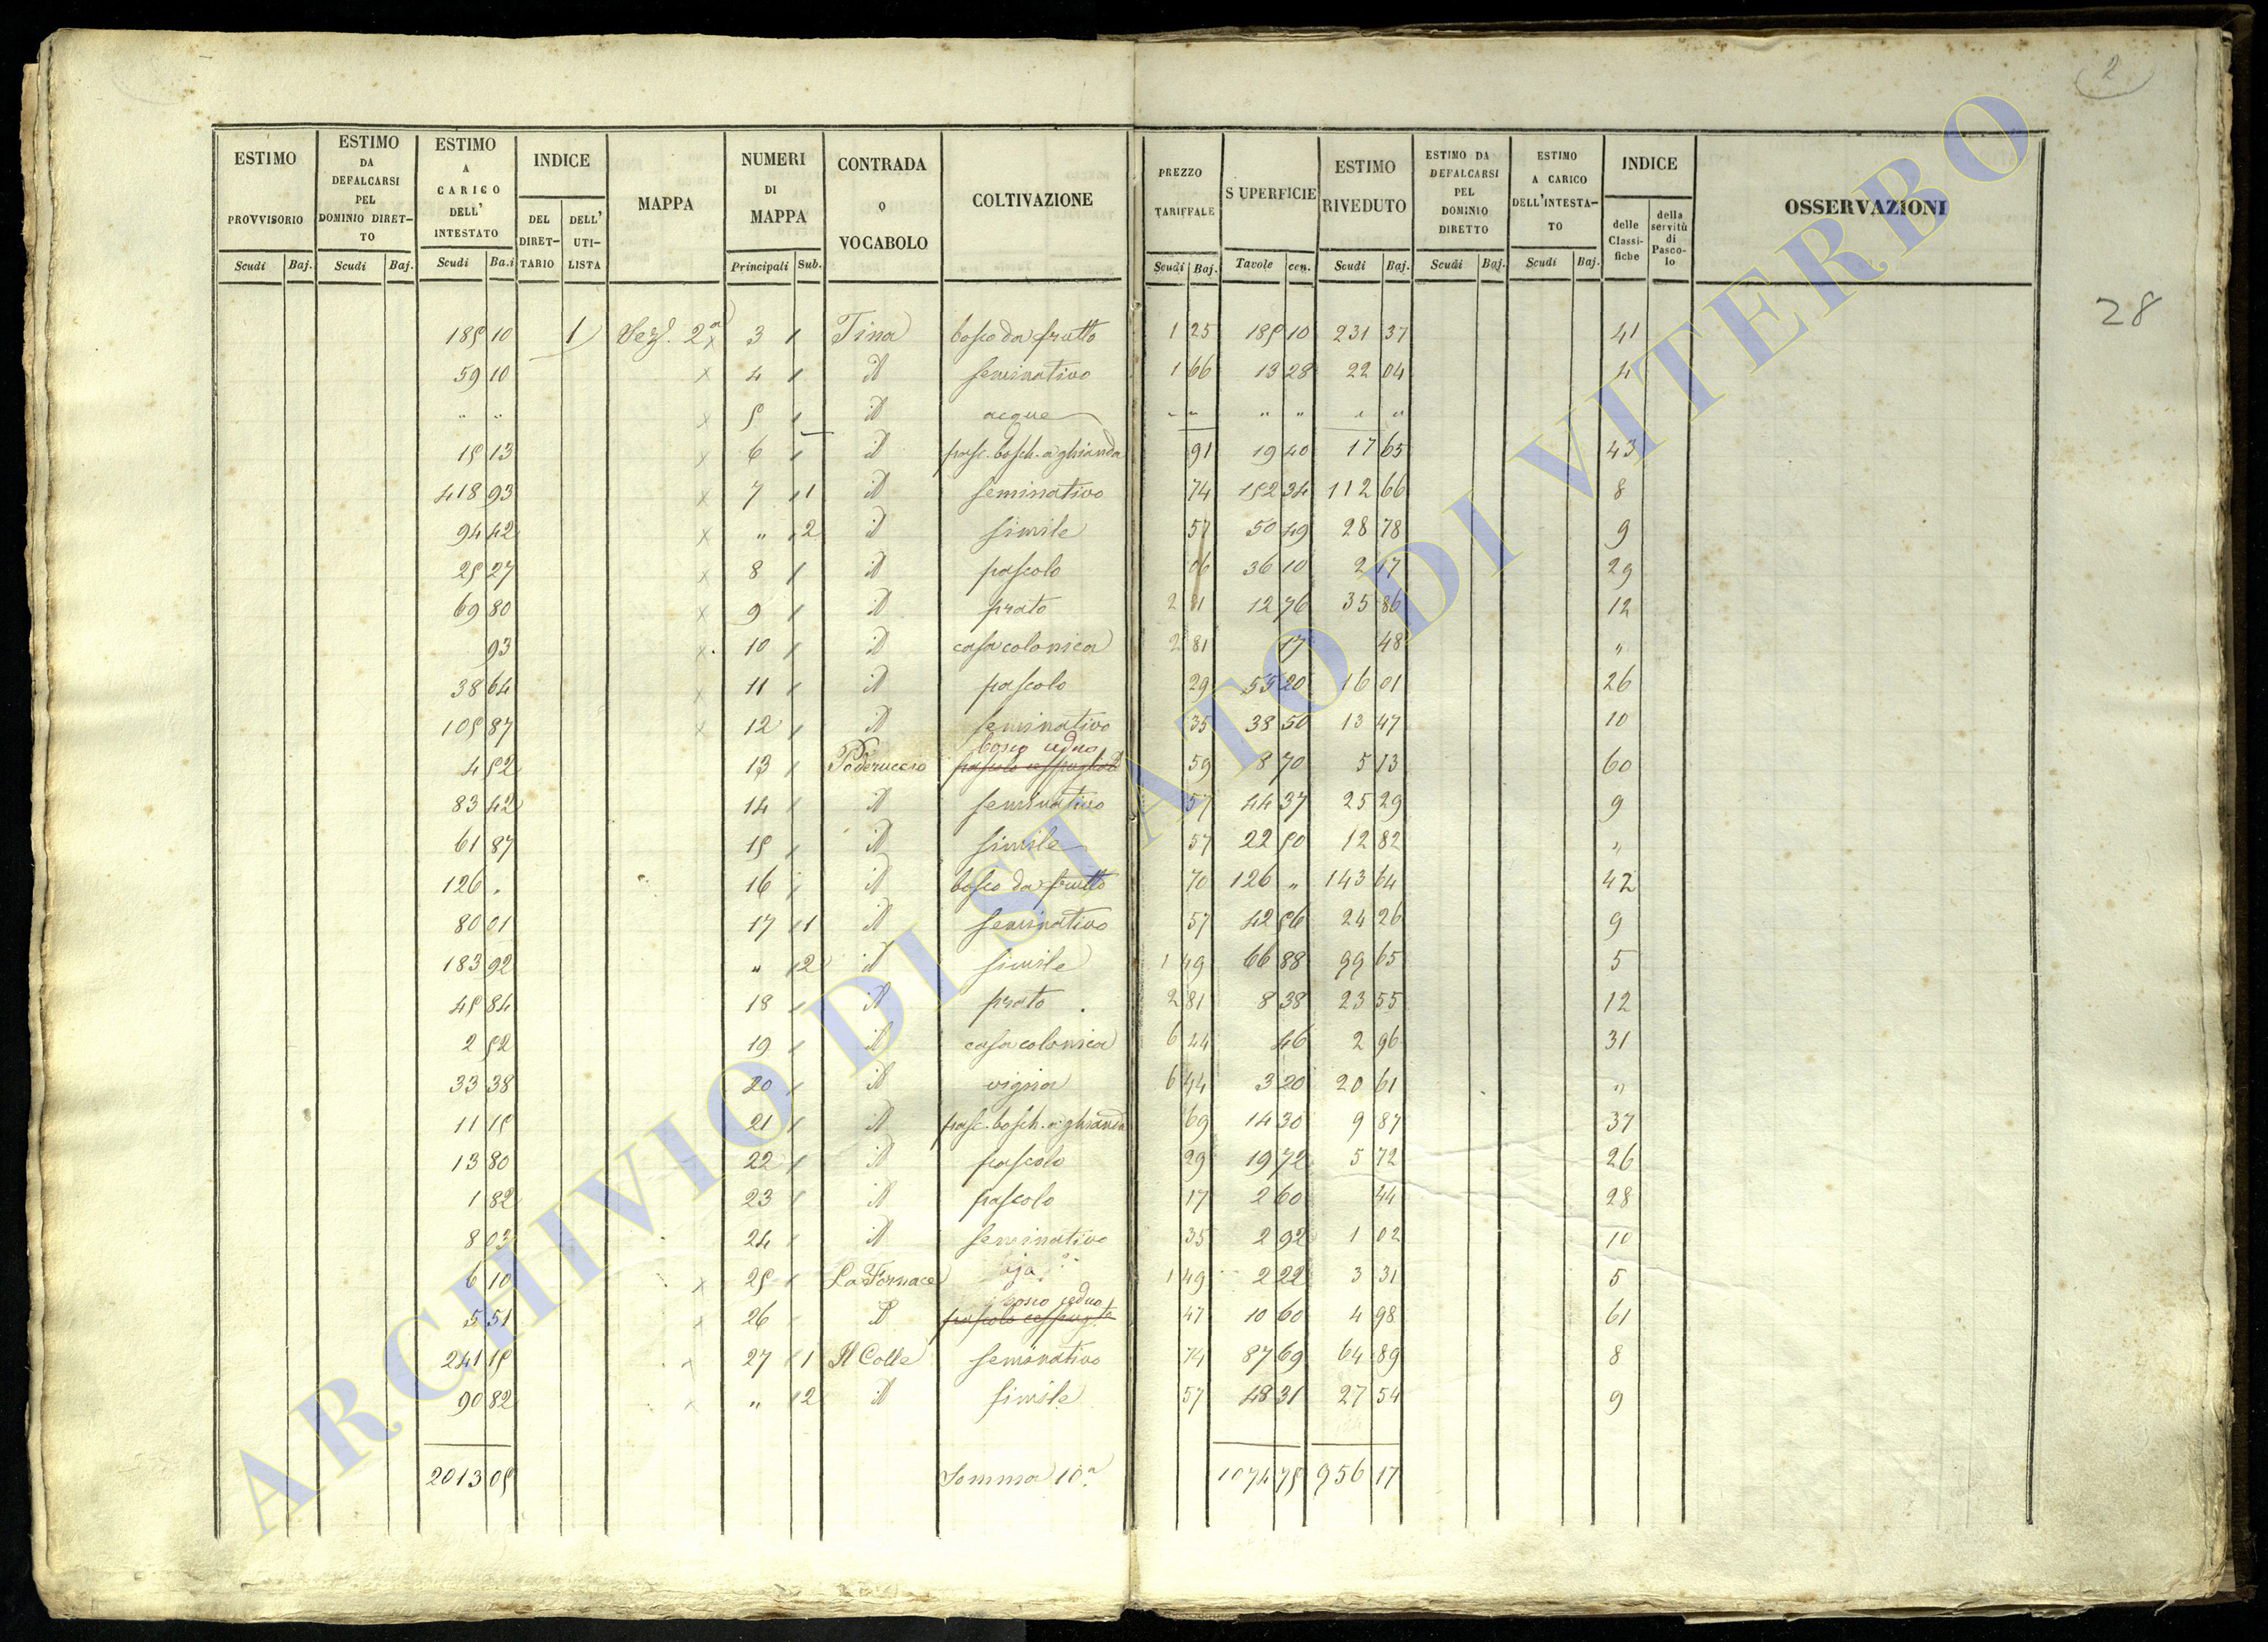 2
28
ESTIMO PROVVISORIO | ESTIMO DA DEFALCARSI PEL DOMINIO DIRETTO | ESTIMO A CARICO DELL' INTESTATO | INDICE DEL DIRETTARIO | DELL' UTILISTA | MAPPA | NUMERI DI MAPPA | CONTRADA O VOCABOLO | COLTIVAZIONE | PREZZO TARIFFALE | SUPERFICIE | ESTIMO RIVEDUTO | ESTIMO DA DEFALCARSI PEL DOMINIO DIRETTO | ESTIMO A CARICO DELL'INTESTATO | INDICE delle Classifiche | della servitù di Pascolo | OSSERVAZIONI
Scudi | Baj. | Scudi | Baj. | Scudi | Ba.i | Principali | Sub. | Scudi | Baj. | Tavole | cen. | Scudi | Baj. | Scudi | Baj. | Scudi | Baj.
185 10 | 1 | Sez. 2a x | 3 / | Tina | bosco da frutto | 1 25 | 185 10 | 231 37 | 41
59 10 | x | 4 / | id | seminativo | 1 66 | 13 28 | 22 04 | 4
" " | x | 5 / | id | acque | " " | " " | " "
15 13 | x | 6 / | id | pasc. bosch. a ghianda | 91 | 19 40 | 17 65 | 43
418 93 | x | 7 / 1 | id | seminativo | 74 | 152 34 | 112 66 | 8
94 42 | x | " / 2 | id | simile | 57 | 50 49 | 28 78 | 9
25 27 | x | 8 / | id | pascolo | 06 | 36 10 | 2 17 | 29
69 80 | x | 9 / | id | prato | 2 81 | 12 76 | 35 86 | 12
93 | x | 10 / | id | casa colonica | 2 81 | 17 | 48 | "
38 64 | x | 11 / | id | pascolo | 29 | 55 20 | 16 01 | 26
105 87 | x | 12 / | id | seminativo | 35 | 38 50 | 13 47 | 10
bosco ceduo
4 52 | 13 / | Poderuccio | pascolo cespugliato | 59 | 8 70 | 5 13 | 60
83 42 | 14 / | id | seminativo | 57 | 44 37 | 25 29 | 9
61 87 | 15 / | id | simile | 57 | 22 50 | 12 82 | "
126 . | 16 / | id | bosco da frutto | 70 | 126 " | 143 64 | 42
80 01 | 17 / 1 | id | seminativo | 57 | 42 56 | 24 26 | 9
183 92 | " / 2 | id | simile | 1 49 | 66 88 | 99 65 | 5
45 84 | 18 / | id | prato | 2 81 | 8 38 | 23 55 | 12
2 52 | 19 / | id | casa colonica | 6 44 | 46 | 2 96 | 31
33 38 | 20 / | id | vigna | 6 44 | 3 20 | 20 61 | "
11 15 | 21 / | id | pasc. bosch. a ghianda | 69 | 14 30 | 9 87 | 37
13 80 | 22 / | id | pascolo | 29 | 19 72 | 5 72 | 26
1 82 | 23 / | id | pascolo | 17 | 2 60 | 44 | 28
8 03 | 24 / | id | seminativo | 35 | 2 92 | 1 02 | 10
6 10 | x | 25 / | La Fornace | aja | 1 49 | 2 22 | 3 31 | 5
bosco ceduo
5 51 | x | 26 | id | 47 | 10 60 | 4 98 | 61
241 15 | x | 27 / 1 | Il Colle | seminativo | 74 | 87 69 | 64 89 | 8
90 82 | x | " / 2 | id | simile | 57 | 48 31 | 27 54 | 9
2013 05 | Somma 10a | 1074 75 | 956 17
ARCHIVIO DI STATO DI VITERBO